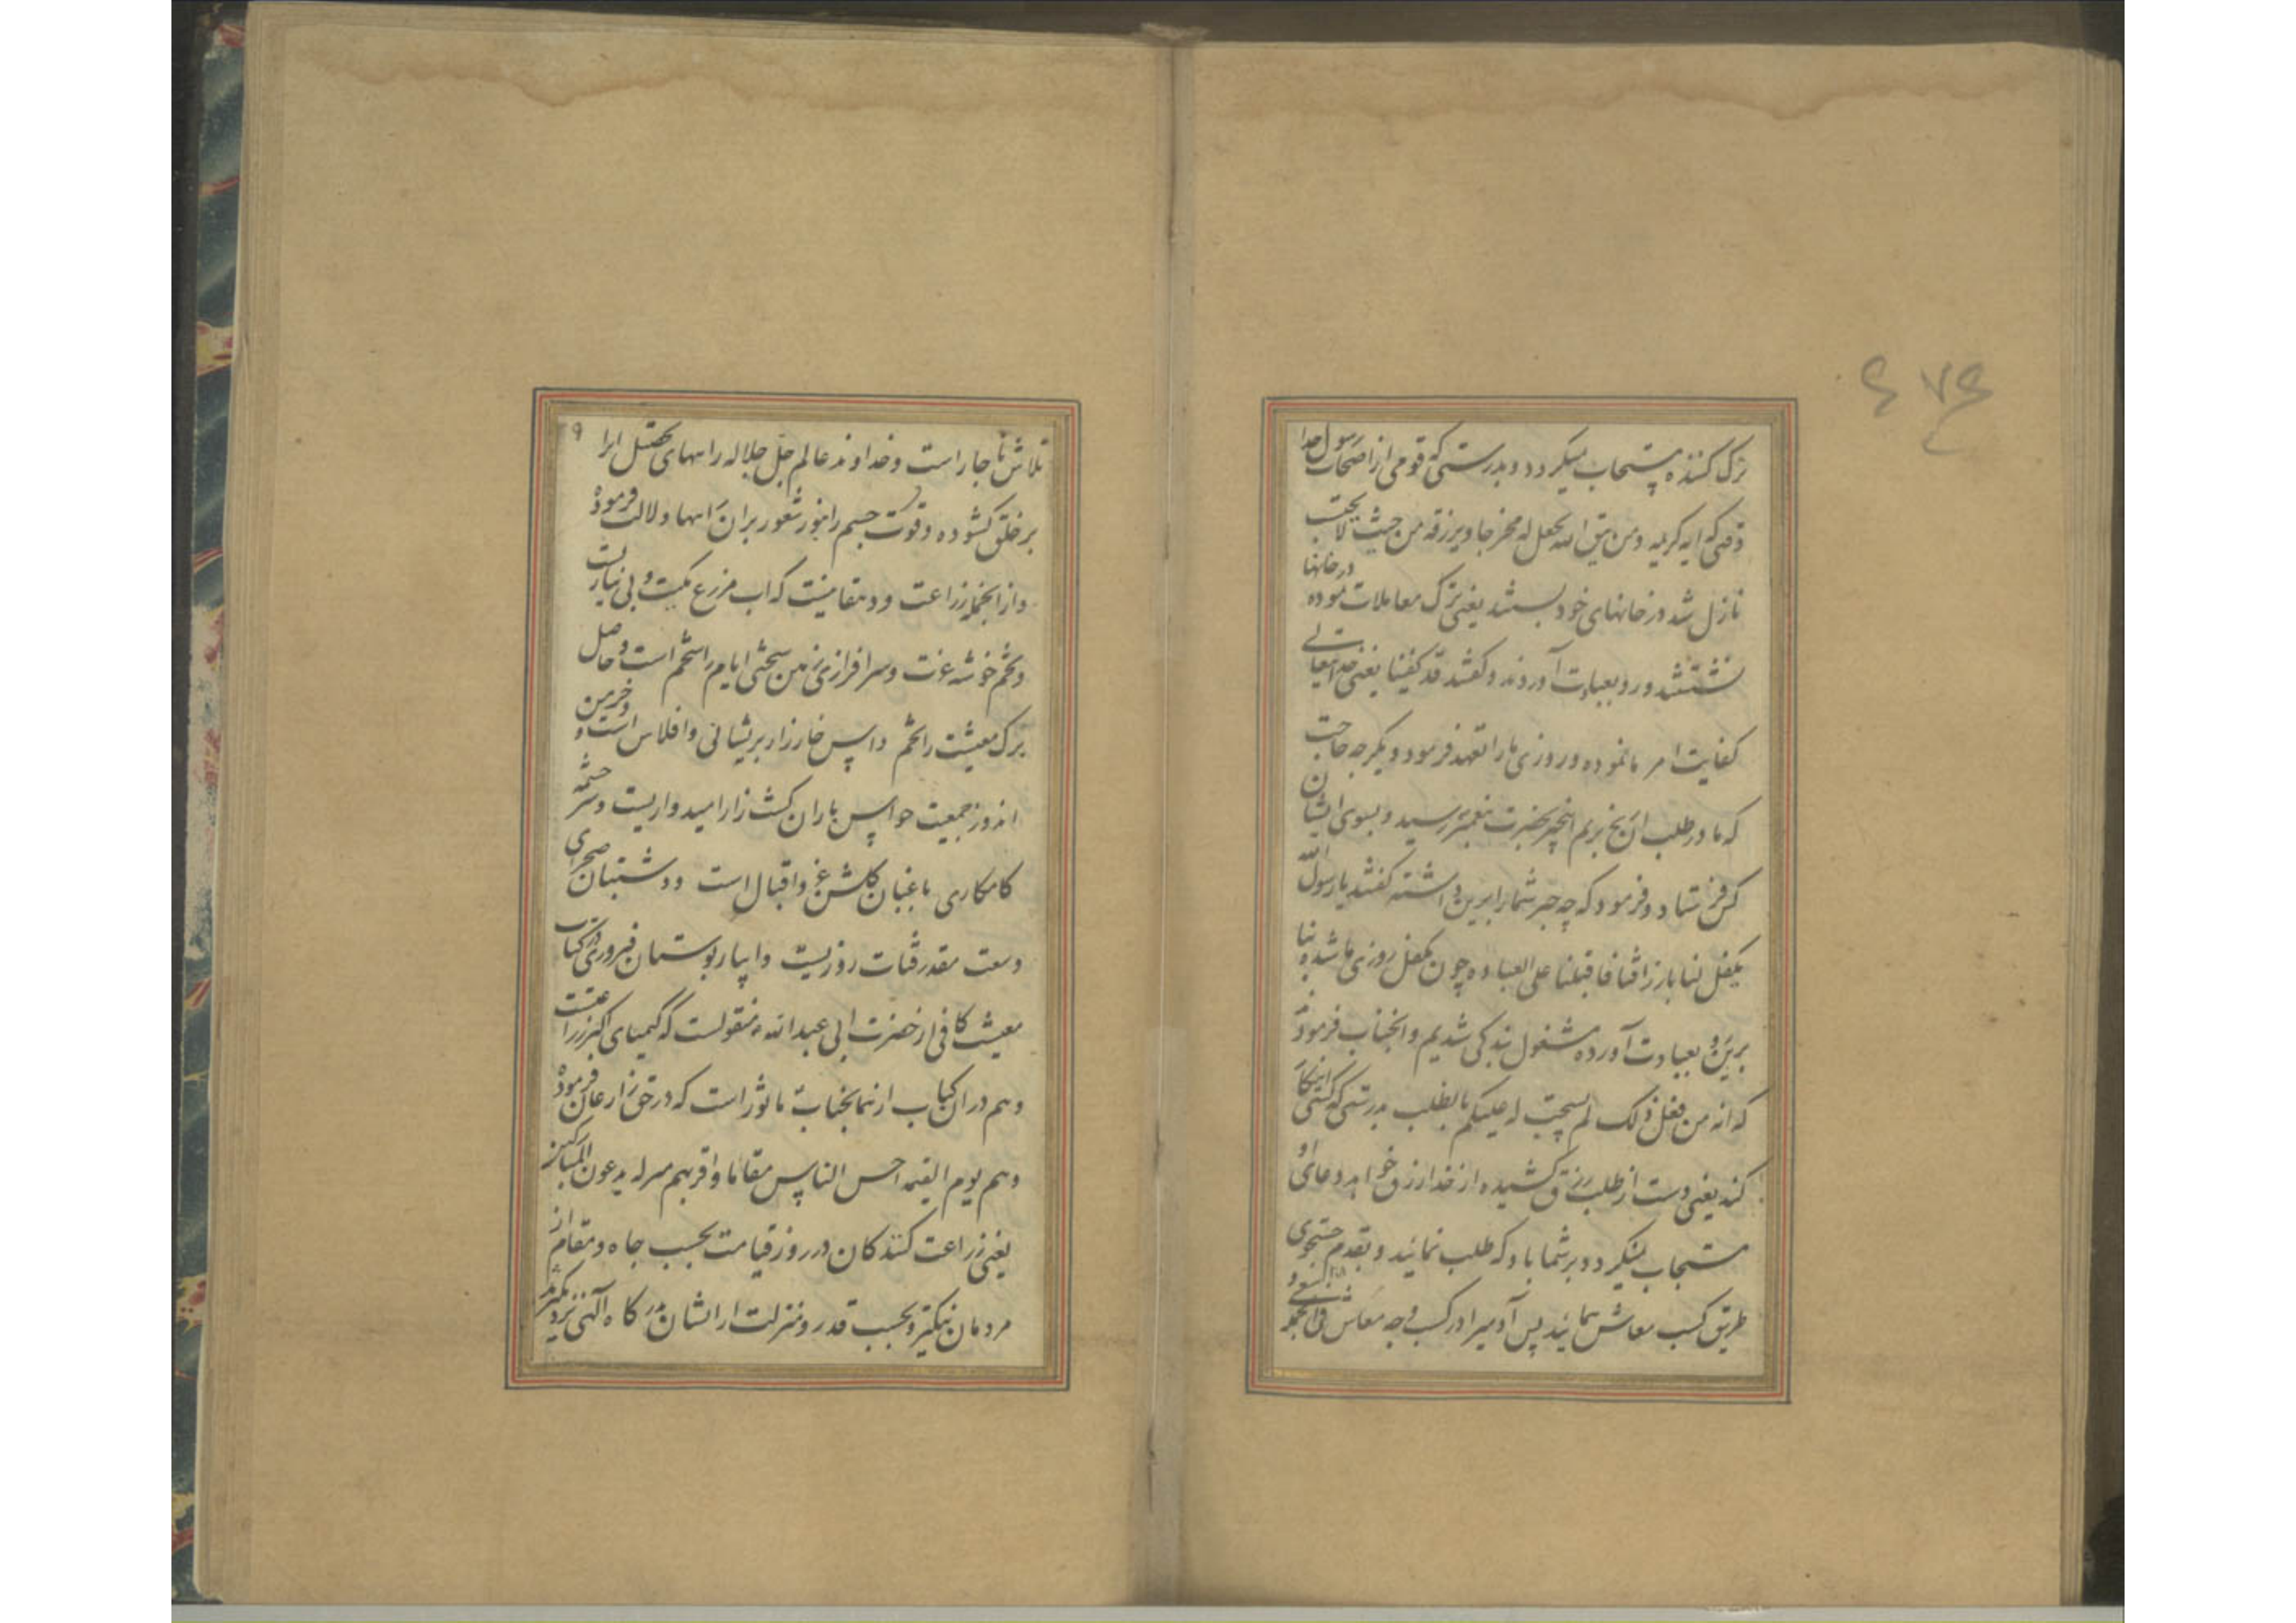 ترک کننده مستجاب میگردد و بدرستی که قومی از اصحاب رسول خدا
وقتی که ایه کریمه ومن یتق الله یجعل له مخرجا ویرزقه من حیث لا یحتسب
نازل شد در خانهای خود بستند یعنی ترک معاملات نموده در خانها
نشستند و رو بعبادت آوردند و گفتند قد کفینا یعنی خدایتعالی
کفایت امر ما نموده و روزی ما را تعهد فرمود دیگر چه حاجت
که ما در طلب ان رنج بریم اینخبر بحضرت پیغمبر رسید و بسوی ایشان
کس فرستاد و فرمود که چه چیز شما را برین داشته گفتند یا رسول الله
تکفل لنا بارزاقنا فاقبلنا علی العباده چون تکفل روزی ما شده بنا
برین رو بعبادت آورده مشغول بندگی شدیم و انجناب فرمود
که انه من فعل ذلک لم یستجب له علیکم بالطلب بدرستی که کسی اینکار
کند یعنی دست از طلب رزق کشیده از خدا رزق خواهد دعای او
مستجاب نمیگردد و بر شما باد که طلب نمائید و بقدم جستجوی
طریق کسب معاش نمائید پس آدمیرا در کسب وجه معاش فی الجمله سعی و
۹
تلاش ناچار است و خداوند عالم جل جلاله راههای تحصیل انرا
بر خلق گشوده و قوت جسم را بنور شعور بران راهها دلالت فرموده
و از انجمله زراعت و دهقانیست که اب مزرع مکنت و بی نیازیست
و تخم خوشه عزت و سرافرازی زهر سختی ایام را تخم است و حاصل
برک معیشت را تخم داس خارزار پریشانی و افلاس است و خرمن
اندوز جمعیت حواس باران کشت زار امیدواریست و سرچشمه
کامکاری باغبان گلشن عز و اقبال است و دشتبان صحرای
وسعت مقدر قنات روزیست و ابیار بوستان فیروزی در کتاب
معیشت کافی از حضرت ابی عبدالله ع منقولست که کیمیای اکبر زراعتست
و هم در ان کتاب از همانجناب ماثور است که در حق زارعان فرموده
وهم یوم القیمه احسن الناس مقاما واقربهم منزله یدعون المبارکین
یعنی زراعت کنندکان در روز قیامت بحسب جاه و مقام از
مردمان نیکتر و بحسب قدر و منزلت از ایشان بدرگاه آلهی نزدیکترند